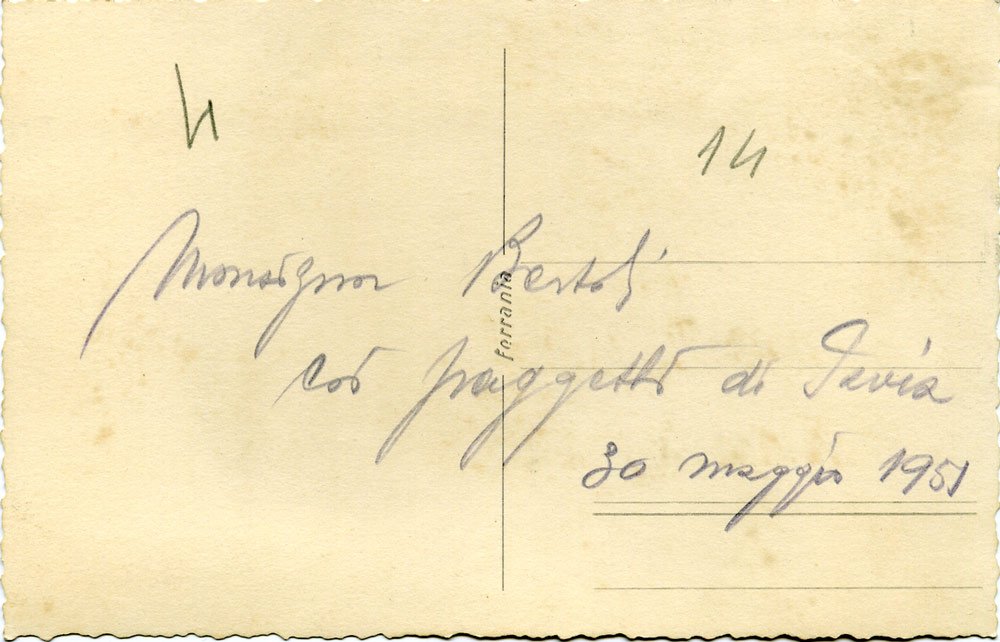 4
14
Monsignor Bertoli
coi paggetti di Pavia
30 maggio 1951
ferrania